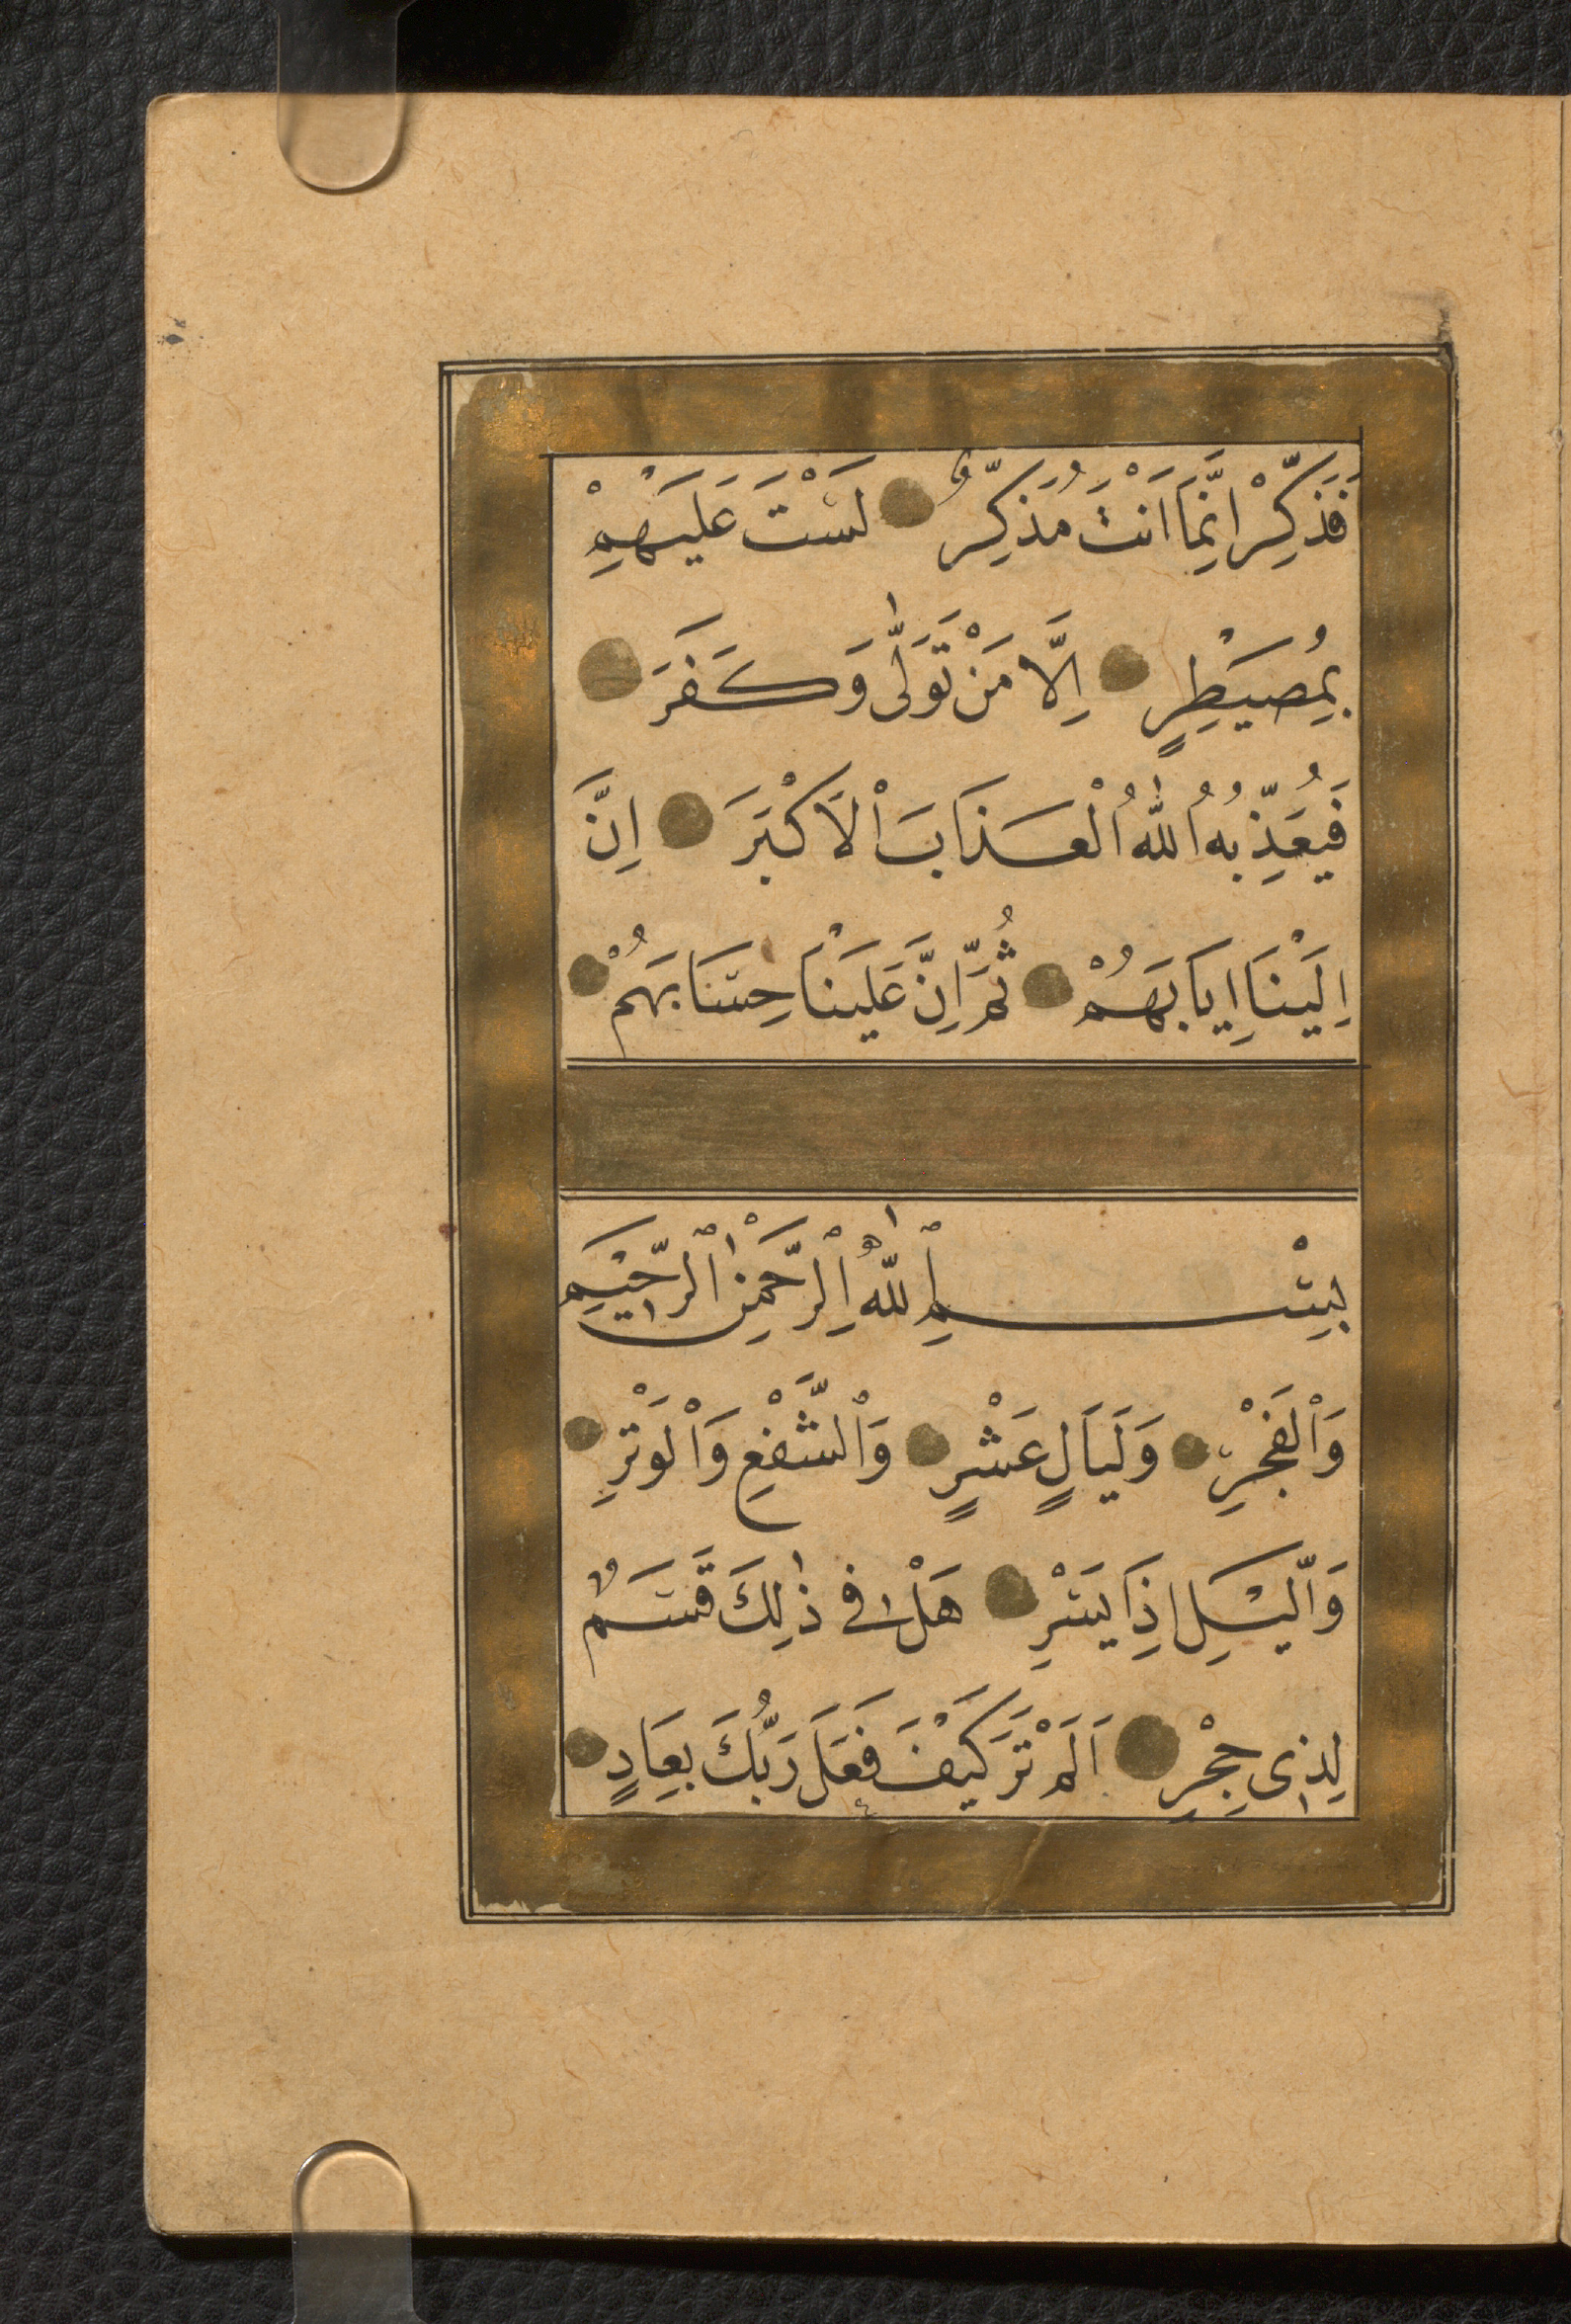 فَذَكِّرْ اِنَّمَا اَنْتَ مُذَكِّرٌ لَسْتَ عَلَيْهِمْ
بِمُصَيْطِرٍ اِلَّا مَنْ تَوَلّٰى وَكَفَرَ
فَيُعَذِّبُهُ اللّٰهُ الْعَذَابَ الْاَكْبَرَ اِنَّ
اِلَيْنَا اِيَابَهُمْ ثُمَّ اِنَّ عَلَيْنَا حِسَابَهُمْ
بِسْمِ اللّٰهِ الرَّحْمٰنِ الرَّحِيْمِ
وَالْفَجْرِ وَلَيَالٍ عَشْرٍ وَالشَّفْعِ وَالْوَتْرِ
وَالَّيْلِ اِذَا يَسْرِ هَلْ فِى ذٰلِكَ قَسَمٌ
لِذِى حِجْرٍ اَلَمْ تَرَ كَيْفَ فَعَلَ رَبُّكَ بِعَادٍ